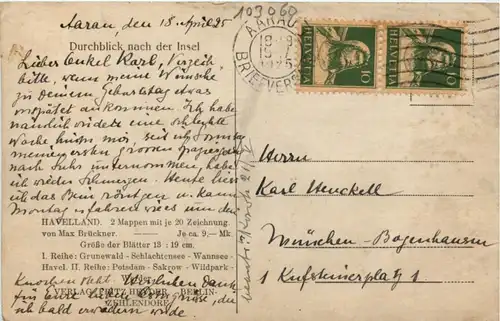 103060
Aarau, den 18. April 25
Durchblick nach der Insel
Lieber Onkel Karl, Verzeih
bitte, wenn meine Wünsche
zu Deinem Geburtstag etwas
verspätet ankommen. Ich habe
nämlich wieder eine schlechte
Woche hinter mir, seit ich
meinen ersten grossen Spaziergang
nach Suhr unternommen, habe
ich wieder Schmerzen. Heute liess
ich das Bein röntgen u. kann
Montag erfahren wies um den
HAVELLAND. 2 Mappen mit je 20 Zeichnung.
von Max Brückner. Je ca. 9.— Mk.
Größe der Blätter 13 : 19 cm.
I. Reihe: Grunewald - Schlachtensee - Wannsee -
Havel. II. Reihe: Potsdam - Sakrow - Wildpark -
Knochen steht. Herzlichen Dank
für Eure lieben Ostergrüsse, die
VERLAG FRITZ HEYDER — BERLIN-
ZEHLENDORF
ich bald erwidern werde
AARAU
BRIEFVERS
HELVETIA
10
HELVETIA
10
Herrn
Karl Henckell
München-Bogenhausen
Kufsteinerplatz 1